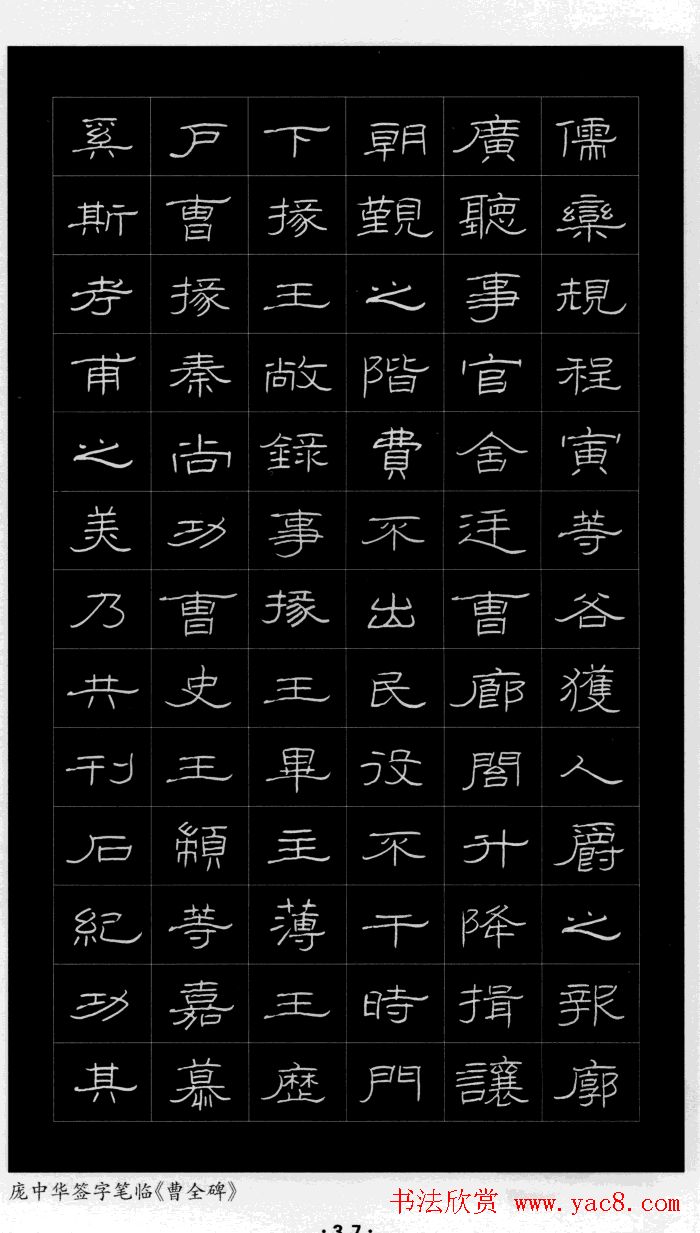 儒欒規程寅等各獲人爵之報廓
廣聽事官舍廷曹廊閣升降揖讓
朝覲之階費不出民役不干時門
下掾王敞錄事掾王畢主薄王歷
户曹掾秦尚功曹史王顓等嘉慕
奚斯考甫之美乃共刊石紀功其
庞中华签字笔临《曹全碑》
书法欣赏 www.yac8.com
·37·